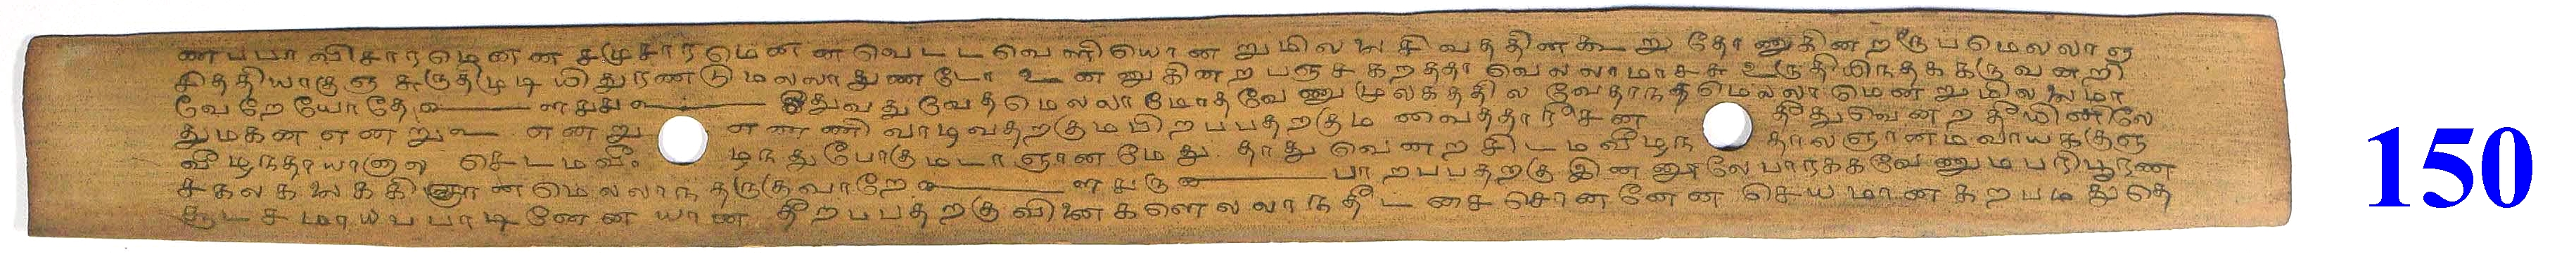 ணபபா விசாரமெனன சமுசாரமெனன வெடடவெளியொன றுமிலலை சிவததினகூறு தோணுகினற ரூபமெலலாஞ
சிததியாகுஞ சுருதிமுடி யிதுரணடு மலலாதுணடோ உனனுகினற பஞசகறததா வெலலாமாசசு உறுதியிநதக கருவனறி
வேறேயோதே ௭௰௭ ஓதுவது வேதமெலலாமோதவேணு மூலகததில வேதாநதமெலலாமென றுமிலலை மா
துமகன எனறு எனறு எணணி வாடிவதறகுமபிறபபதறகும வைததாரீசன தீதுவெனற தீயினிலே
வீழநதாயானால செடமவீ ழநதுபோகுமடா ஞானமேது தாதுவெனற சிடமவீழந தாலஞானமவாயககுஞ
சகலகலைககியானமெலலாந தருகுவாறே ௭௰௮ பாறபபதறகு இனனூலே பாரககவேணும பரிபூரண
சூடசமாயபபாடினேன யான தீறபபதறகு வினைகளெலலாந தீடசை சொனனேன செயமான கறபமதுதெ
150